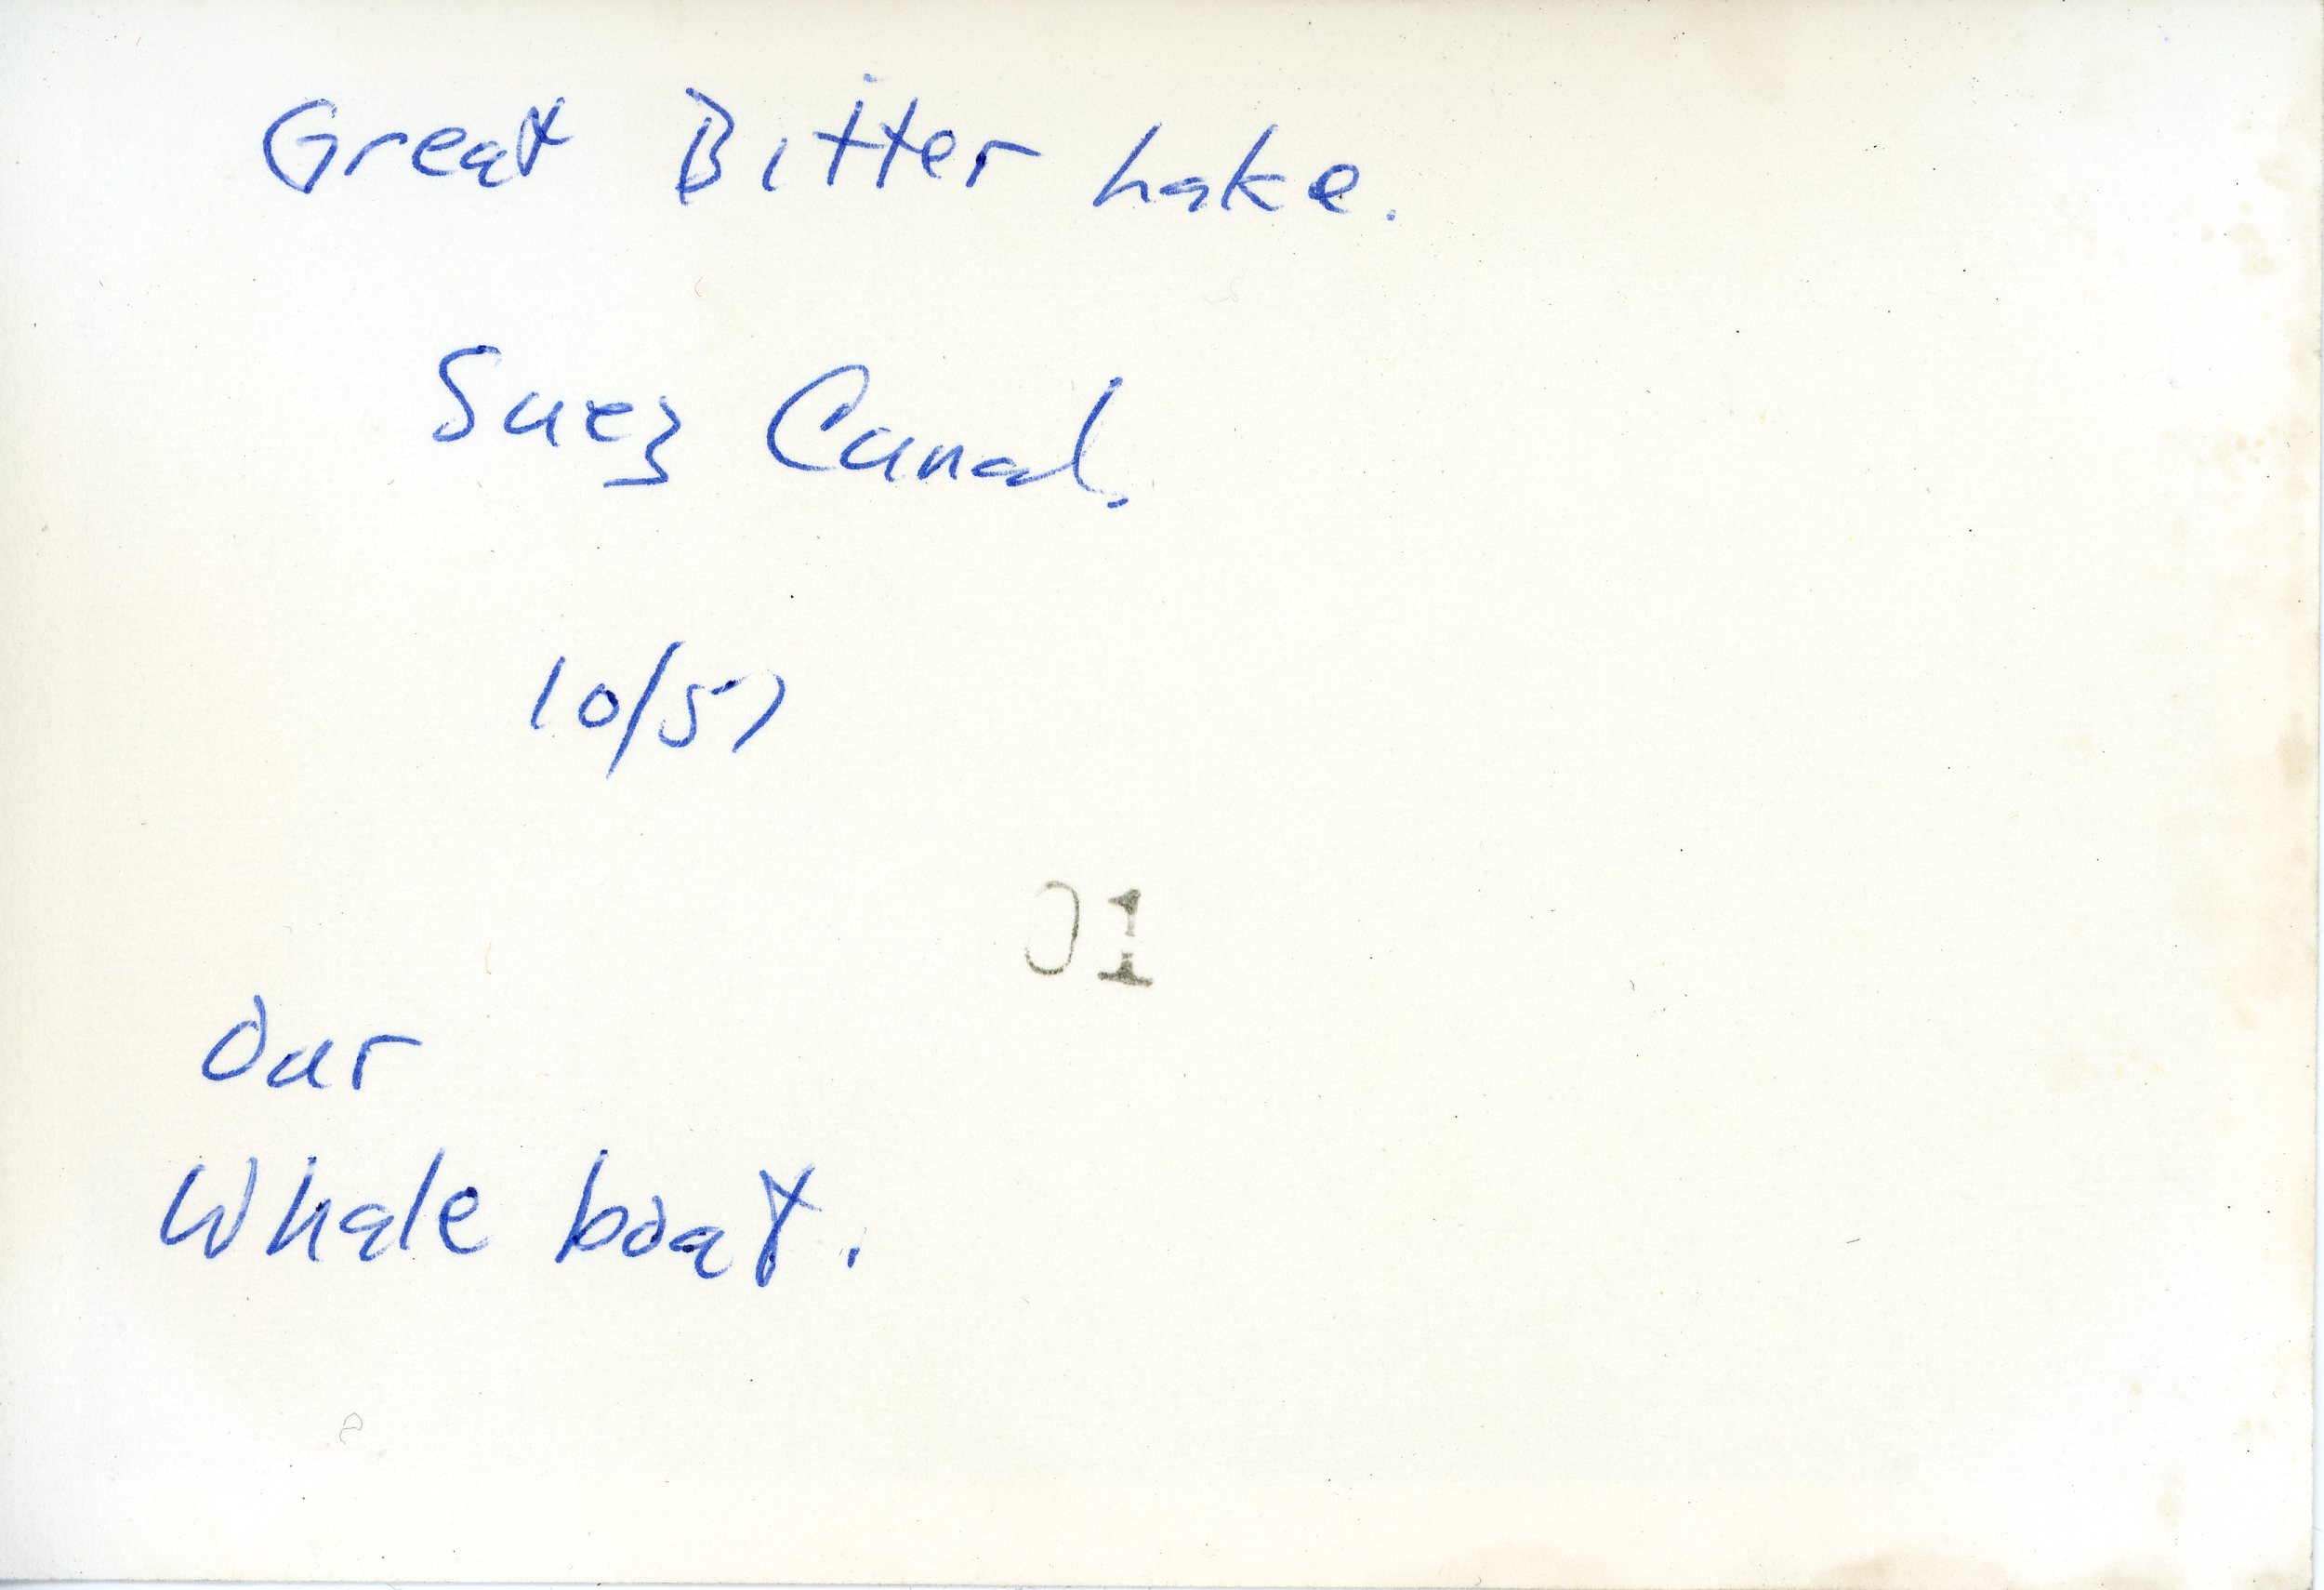 Great Bitter Lake.
Suez Canal.
10/57
01
Our
Whale boat.